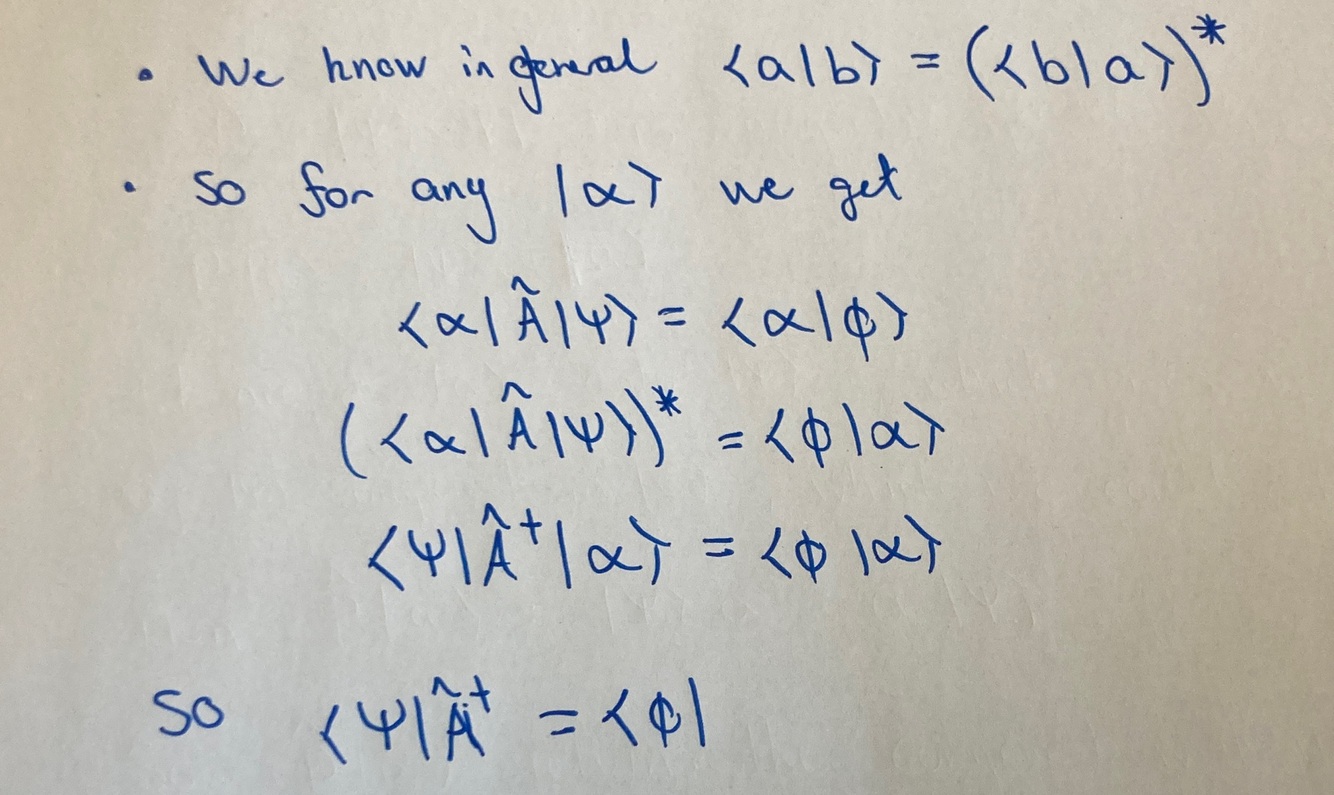 • We know in general ⟨a|b⟩ = (⟨b|a⟩)*
• So for any |α⟩ we get
⟨α|Â|Ψ⟩ = ⟨α|ϕ⟩
(⟨α|Â|Ψ⟩)* = ⟨ϕ|α⟩
⟨Ψ|Â†|α⟩ = ⟨ϕ|α⟩
So ⟨Ψ|Â† = ⟨ϕ|